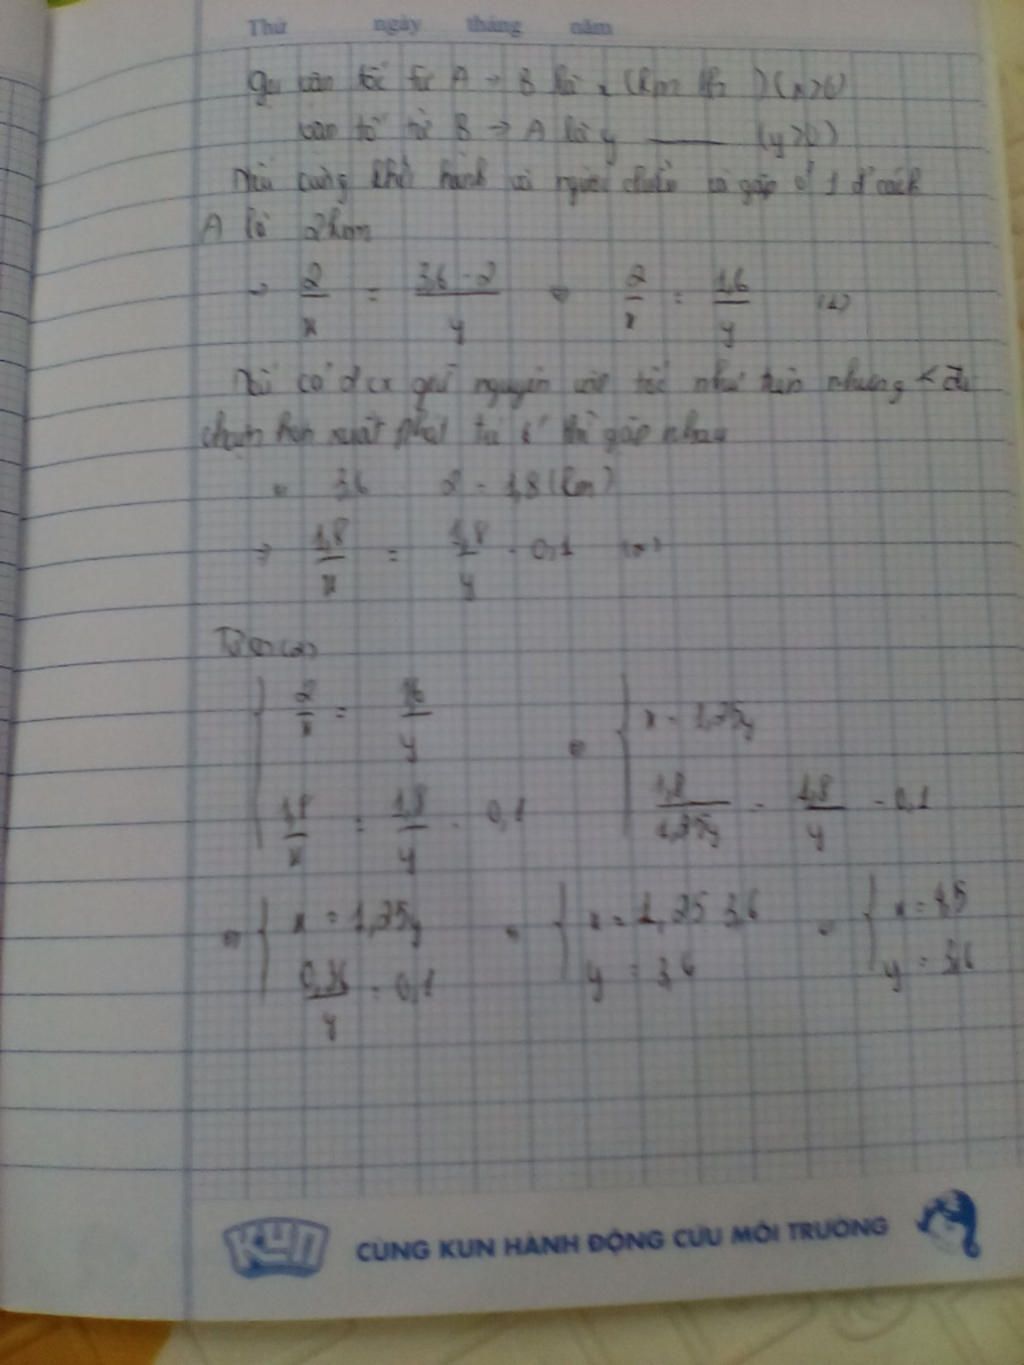 Thứ ngày tháng năm
Gọi vận tốc từ A → B là x (km/h) (x>0)
vận tố từ B → A là y ——— (y>0)
Nếu cùng khởi hành và người chuyển và gặp ở 1 đ' cách
A là 2km
→ 2/x = 3,6 - 2/y ⇔ 2/x = 1,6/y (1)
Nếu cả giữ nguyên vận tốc như trên nhưng
chậm hơn xuất phát 6' thì gặp nhau
3,6 : 2 = 1,8 (km)
→ 1,8/x = 1,8/y - 0,1
{ 2/x = 1,6/y ⇔ { x = 1,25y
1,8/x = 1,8/y - 0,1 1,8/1,25y = 1,8/y - 0,1
⇔ { x = 1,25y ⇔ { x = 1,25 . 3,6 ⇔ { x = 4,5
0,36/y = 0,1 y = 3,6 y = 3,6
KUN CÙNG KUN HÀNH ĐỘNG CỨU MÔI TRƯỜNG